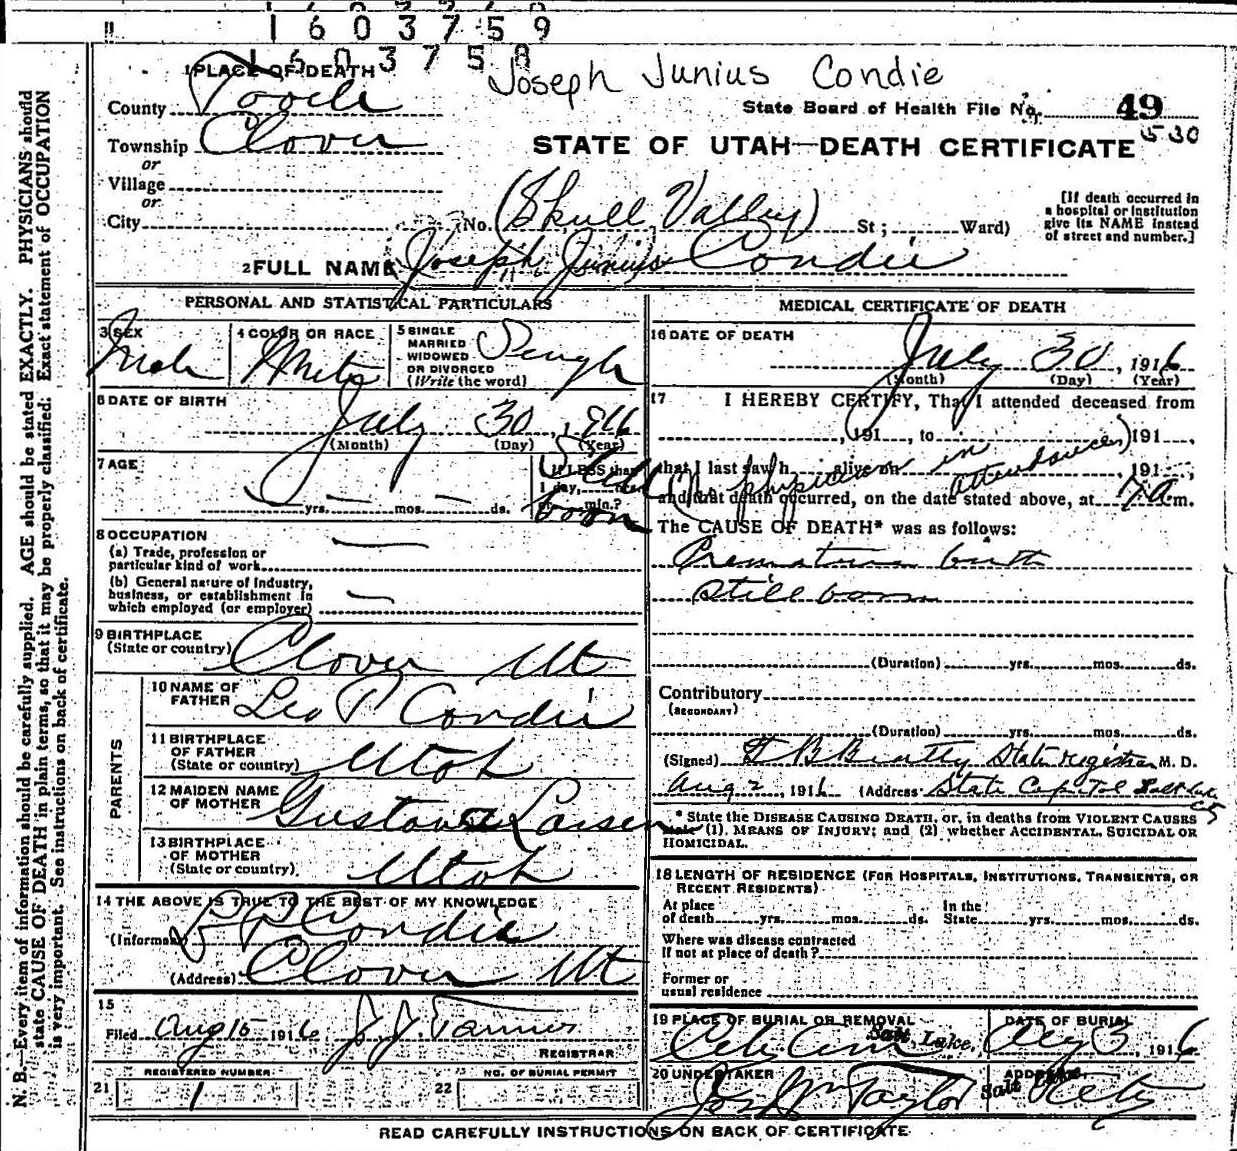 1603759
1603758
Joseph Junius Condie
1 PLACE OF DEATH
County Tooele
State Board of Health File No. 49
530
Township Clover
STATE OF UTAH—DEATH CERTIFICATE
or
Village
or
City No. (Skull Valley) St; Ward)
[If death occurred in
a hospital or institution
give its NAME instead
of street and number.]
2 FULL NAME Joseph Junius Condie
PERSONAL AND STATISTICAL PARTICULARS
3 SEX Male
4 COLOR OR RACE White
5 SINGLE
MARRIED
WIDOWED
OR DIVORCED
(Write the word)
Single
6 DATE OF BIRTH
July 30, 1916
(Month) (Day) (Year)
7 AGE
— yrs. — mos. — ds.
If LESS than
1 day, hrs.
or min.?
Still born
8 OCCUPATION
(a) Trade, profession or
particular kind of work —
(b) General nature of industry,
business, or establishment in
which employed (or employer) —
9 BIRTHPLACE
(State or country) Clover Ut
PARENTS
10 NAME OF
FATHER Leo P Condie
11 BIRTHPLACE
OF FATHER
(State or country) Utah
12 MAIDEN NAME
OF MOTHER Larsen
13 BIRTHPLACE
OF MOTHER
(State or country) Utah
14 THE ABOVE IS TRUE TO THE BEST OF MY KNOWLEDGE
(Informant) L P Condie
(Address) Clover Ut
15
Filed Aug 15 1916 J J Tanner
REGISTRAR
REGISTERED NUMBER
21 1
NO. OF BURIAL PERMIT
22
MEDICAL CERTIFICATE OF DEATH
16 DATE OF DEATH
July 30, 1916
(Month) (Day) (Year)
17 I HEREBY CERTIFY, That I attended deceased from
, 191 , to 191 ,
that I last saw h alive on , 191 ,
(No physician in attendance)
and that death occurred, on the date stated above, at 7 a m.
The CAUSE OF DEATH* was as follows:
Premature birth
Still born
(Duration) yrs. mos. ds.
Contributory
(SECONDARY)
(Duration) yrs. mos. ds.
(Signed) T B Beatty State registrar M. D.
Aug 2, 1916 (Address State Capitol Salt Lake
* State the DISEASE CAUSING DEATH, or, in deaths from VIOLENT CAUSES
state (1), MEANS OF INJURY; and (2) whether ACCIDENTAL, SUICIDAL OR
HOMICIDAL.
18 LENGTH OF RESIDENCE (FOR HOSPITALS, INSTITUTIONS, TRANSIENTS, OR
RECENT RESIDENTS)
At place
of death yrs. mos. ds.
In the
State yrs. mos. ds.
Where was disease contracted
If not at place of death?
Former or
usual residence
19 PLACE OF BURIAL OR REMOVAL
City Cem Salt Lake,
DATE OF BURIAL
Aug 3, 1916
20 UNDERTAKER
Jos Wm Taylor
ADDRESS
Salt Lake City
READ CAREFULLY INSTRUCTIONS ON BACK OF CERTIFICATE
N. B.—Every item of information should be carefully supplied. AGE should be stated EXACTLY. PHYSICIANS should
state CAUSE OF DEATH in plain terms, so that it may be properly classified. Exact statement of OCCUPATION
is very important. See instructions on back of certificate.